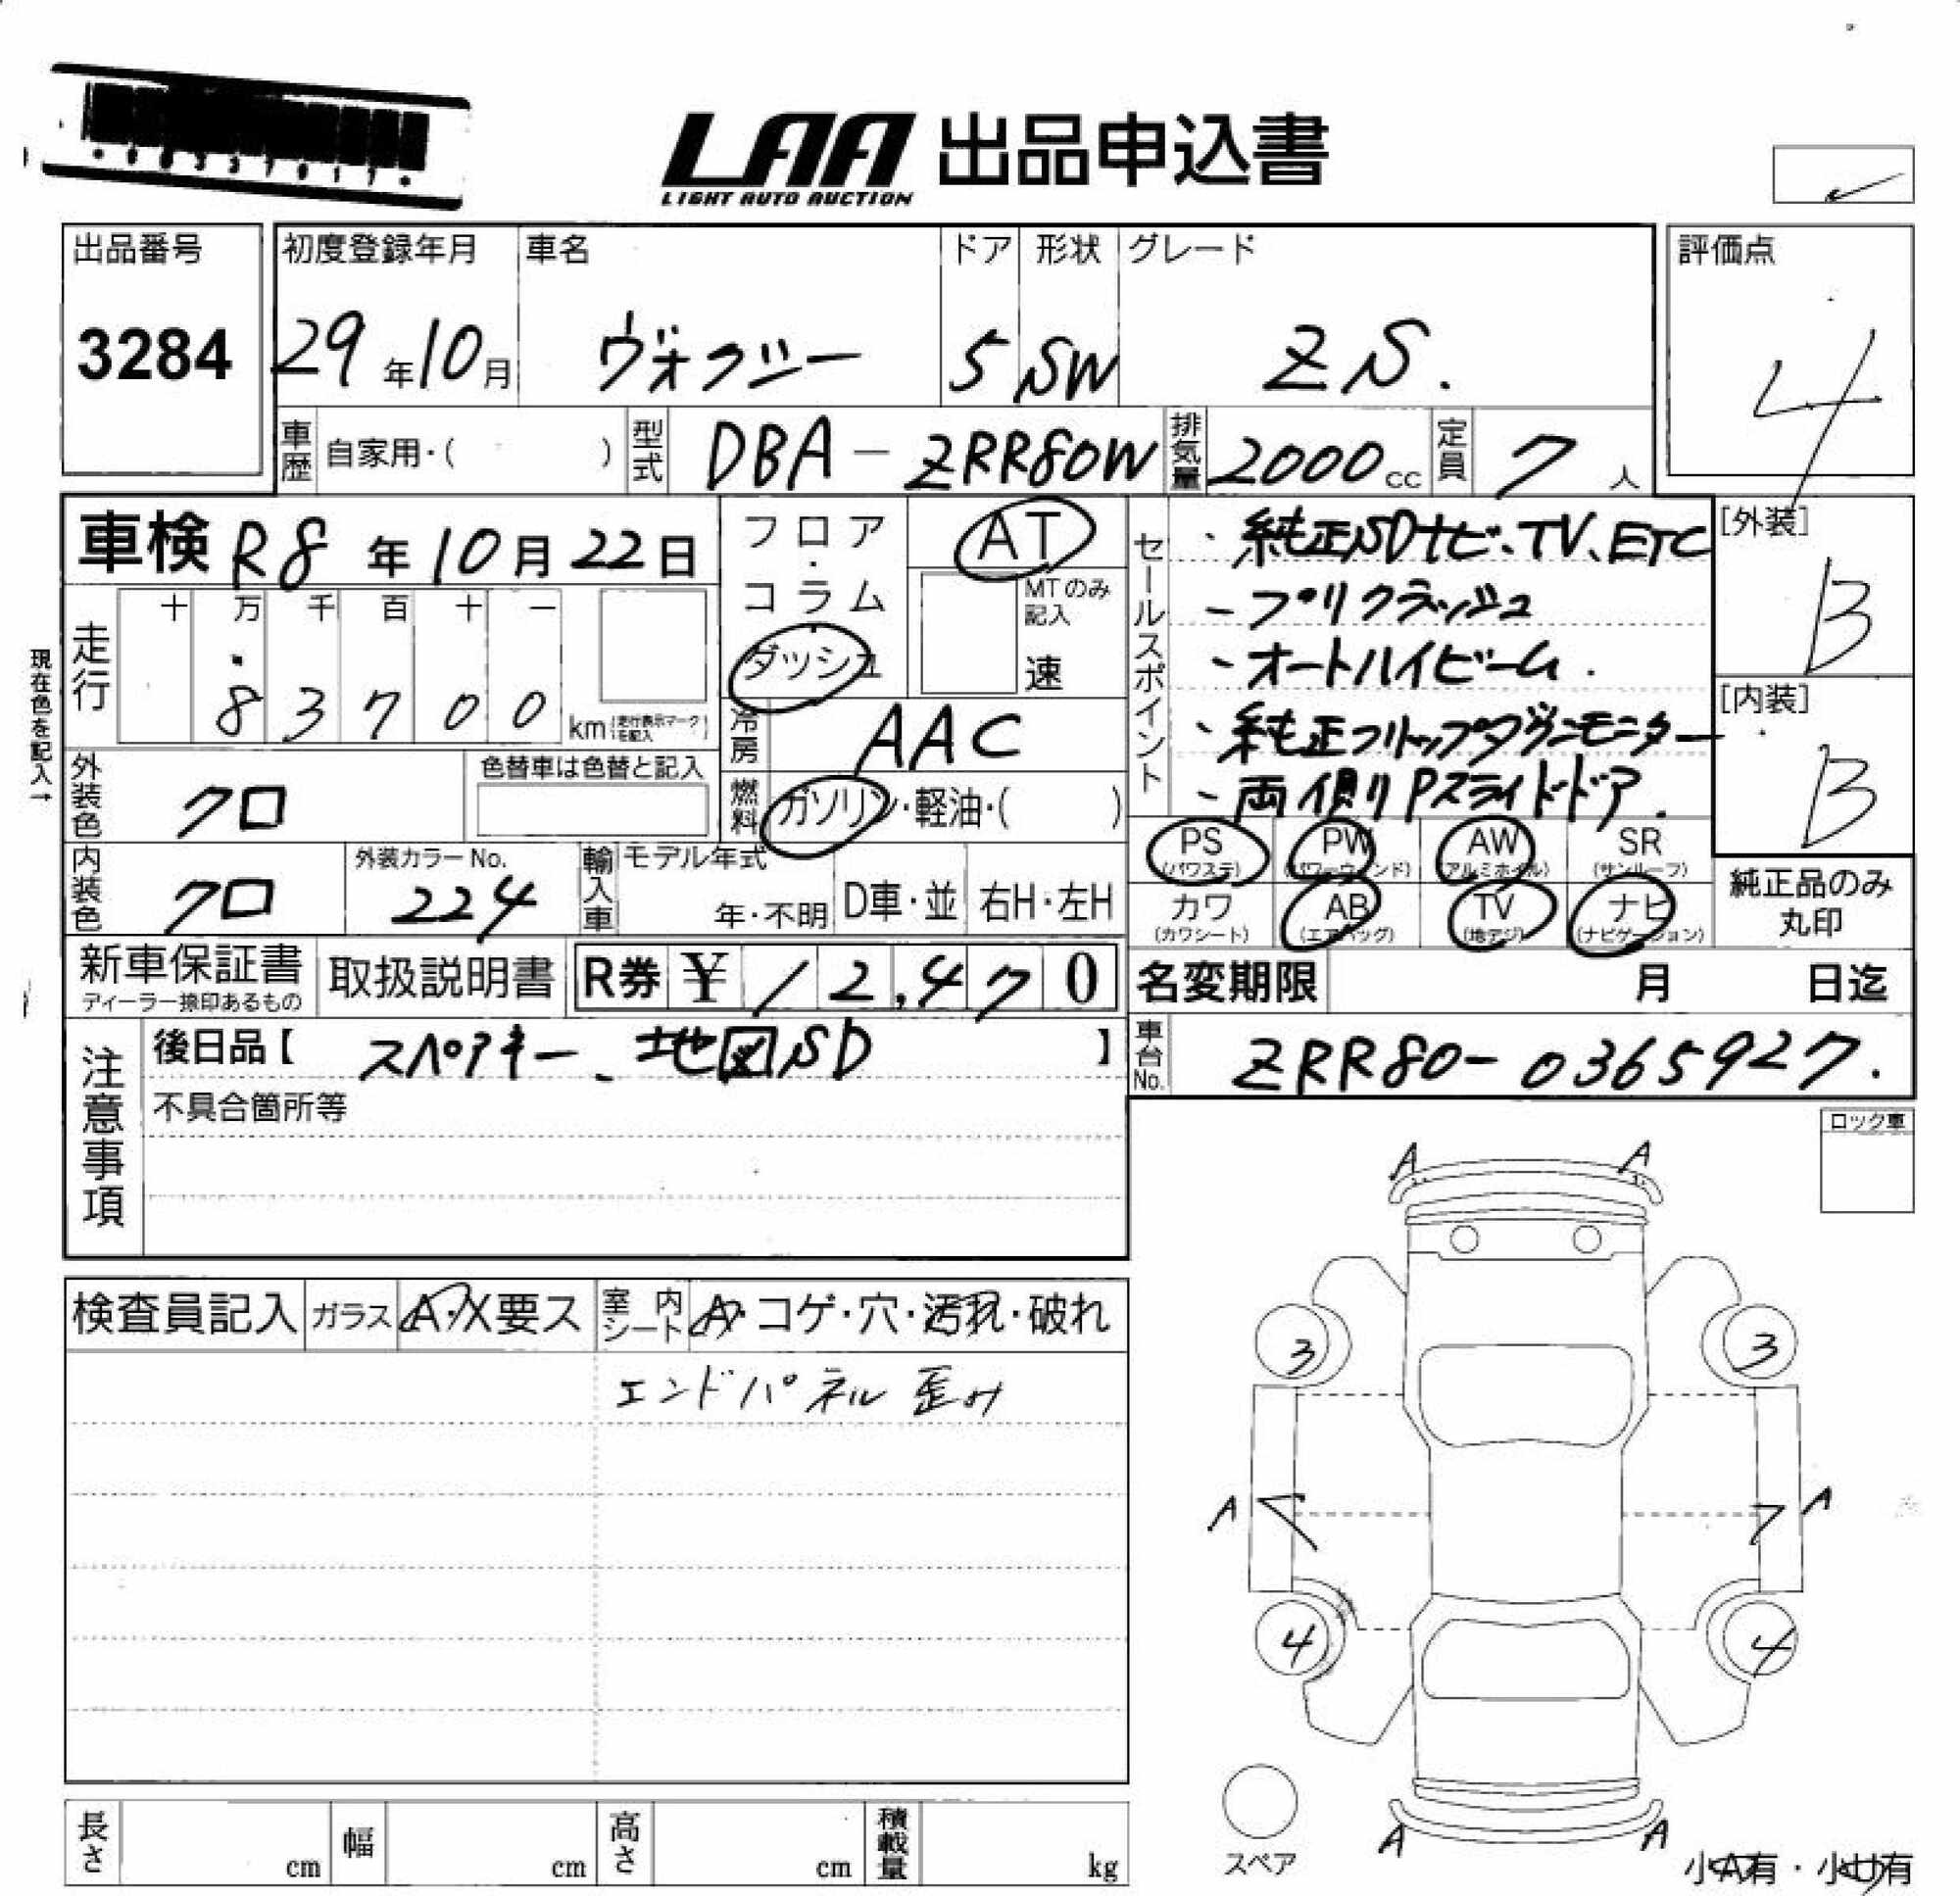 LAA 出品申込書
LIGHT AUTO AUCTION
出品番号
3284
初度登録年月
29年10月
車名
ヴォクシー
ドア
5
形状
SW
グレード
ZS.
評価点
4
車歴 自家用・( )
型式 DBA-ZRR80W
排気量 2000cc
定員 7人
車検 R8年10月22日
フロア・コラム
ダッシュ
AT
MTのみ記入
速
セールスポイント
・純正SDナビ、TV、ETC
-プリクラッシュ
-オートハイビーム.
・純正フリップダウンモニター
-両側Pスライドドア.
[外装]
B
[内装]
B
現在色を記入→
走行
十万千百十一
83700
km(走行表示マークを記入)
冷房 AAC
外装色 クロ
色替車は色替と記入
燃料 ガソリン・軽油・( )
内装色 クロ
外装カラーNo.
224
輸入車 モデル年式
年・不明
D車・並
右H・左H
PS
(パワステ)
PW
(パワーウィンド)
AW
(アルミホイル)
SR
(サンルーフ)
カワ
(カワシート)
AB
(エアバッグ)
TV
(地デジ)
ナビ
(ナビゲーション)
純正品のみ
丸印
新車保証書
ディーラー捺印あるもの
取扱説明書
R券 ¥12,470
名変期限 月 日迄
注意事項
後日品【 スペアキー、地図SD 】
車台No. ZRR80-0365927.
不具合箇所等
ロック車
A A
検査員記入
ガラス A・X要ス
室内シート A・コゲ・穴・汚れ・破れ
エンドパネル 歪み
3 3
A A
4 4
スペア
A A
小A有・小U有
長さ cm
幅 cm
高さ cm
積載量 kg